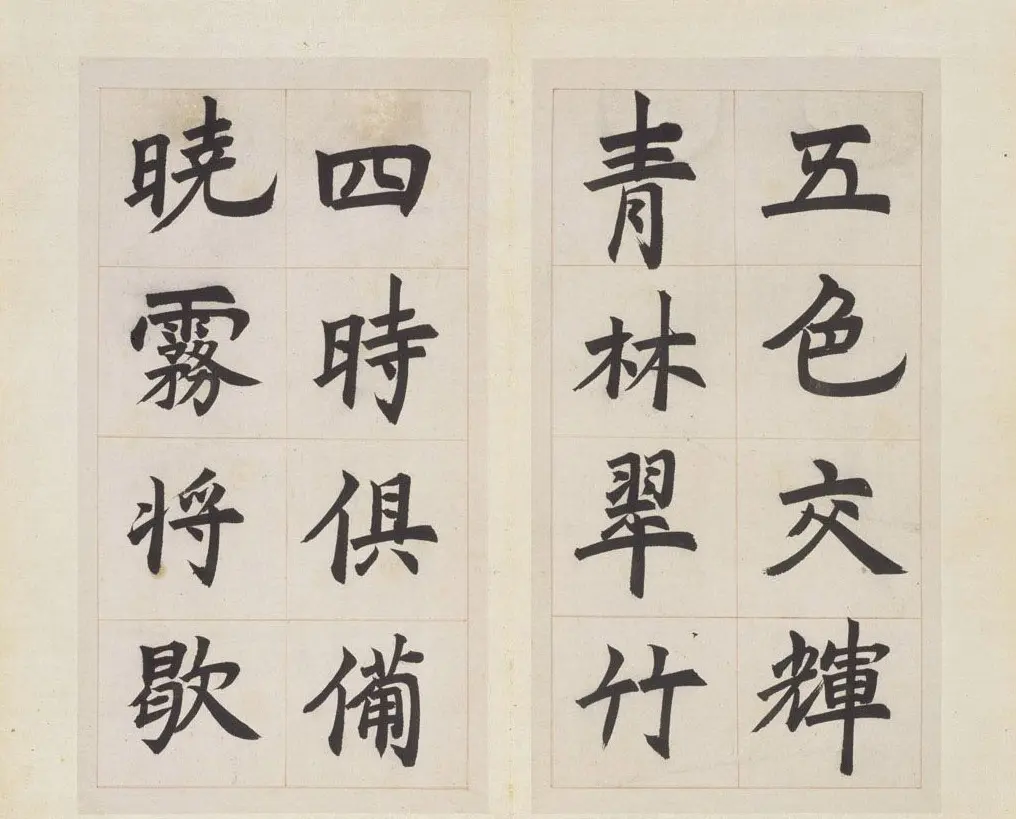 五色交輝
青林翠竹
四時俱備
曉霧将歇